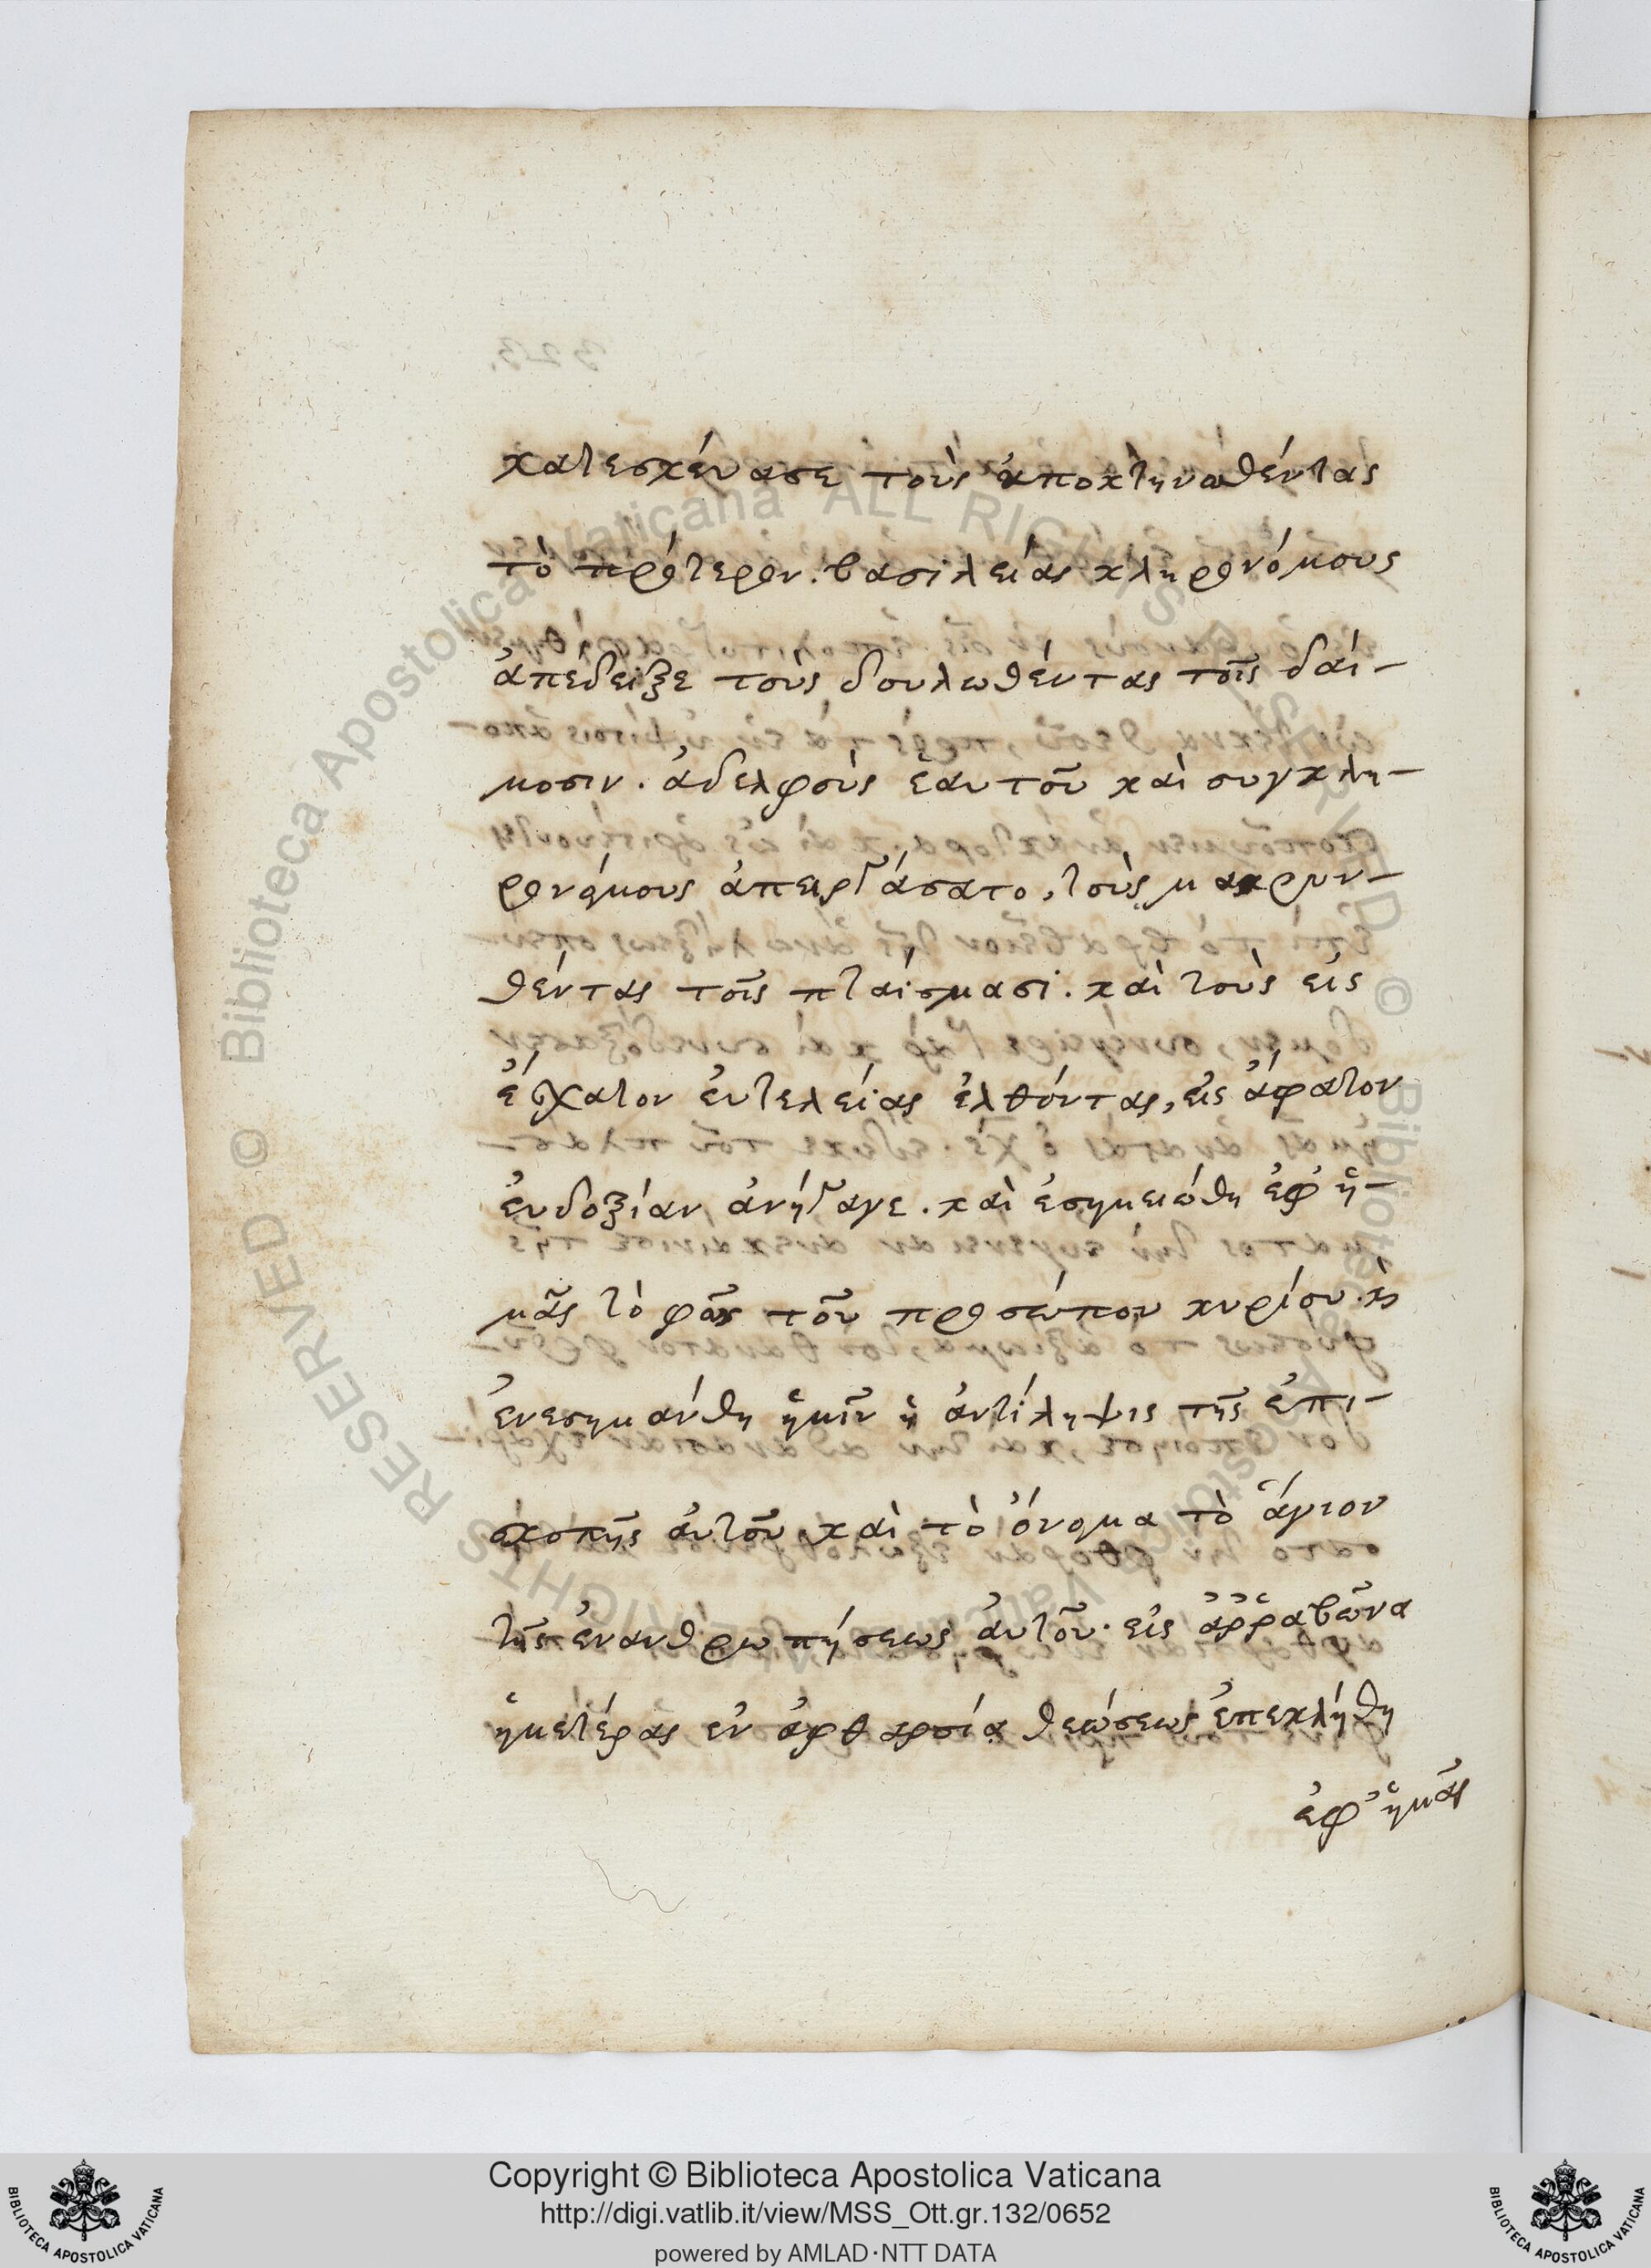 κατεσκέυασε τοὺς ἀποκτηνωθέντας
τὸ πρότερον. βασιλείας κληρονόμους
ἀπέδειξε τοὺς δουλωθέντας τοῖς δαί-
μοσιν. ἀδελφοὺς ἑαυτοῦ καὶ συγκλη-
ρονόμους ἀπειργάσατο, τοὺς μακρυν-
θέντας τοῖς πταίσμασι. καὶ τοὺς εἰς
ἔσχατον ἐυτελείας ἐλθόντας, εἰς ἄφατον
ἐυδοξίαν ἀνήγαγε. καὶ ἐσημειώθη ἐφ ἡ-
μᾶς τὸ φῶς τοῦ προσώπου κυρίου. κὶ
ἐνεσημάνθη ἡμῖν ἡ ἀντίληψις τῆς ἐπι-
σκοπῆς ἀυτοῦ, καὶ τὸ ὄνομα τὸ ἅγιον
τῆς ἐνανθρωπήσεως ἀυτοῦ. εἰς ἀῤῥαβῶνα
ἡμετέρας ἐν ἀφθαρσίᾳ θεώσεως ἐπεκλήθη
ἐφ' ἡμᾶς
Biblioteca Apostolica Vaticana ALL RIGHTS RESERVED ©
Biblioteca Apostolica Vaticana ALL RIGHTS RESERVED ©
Copyright © Biblioteca Apostolica Vaticana
http://digi.vatlib.it/view/MSS_Ott.gr.132/0652
powered by AMLAD·NTT DATA
BIBLIOTECA APOSTOLICA VATICANA
BIBLIOTECA APOSTOLICA VATICANA